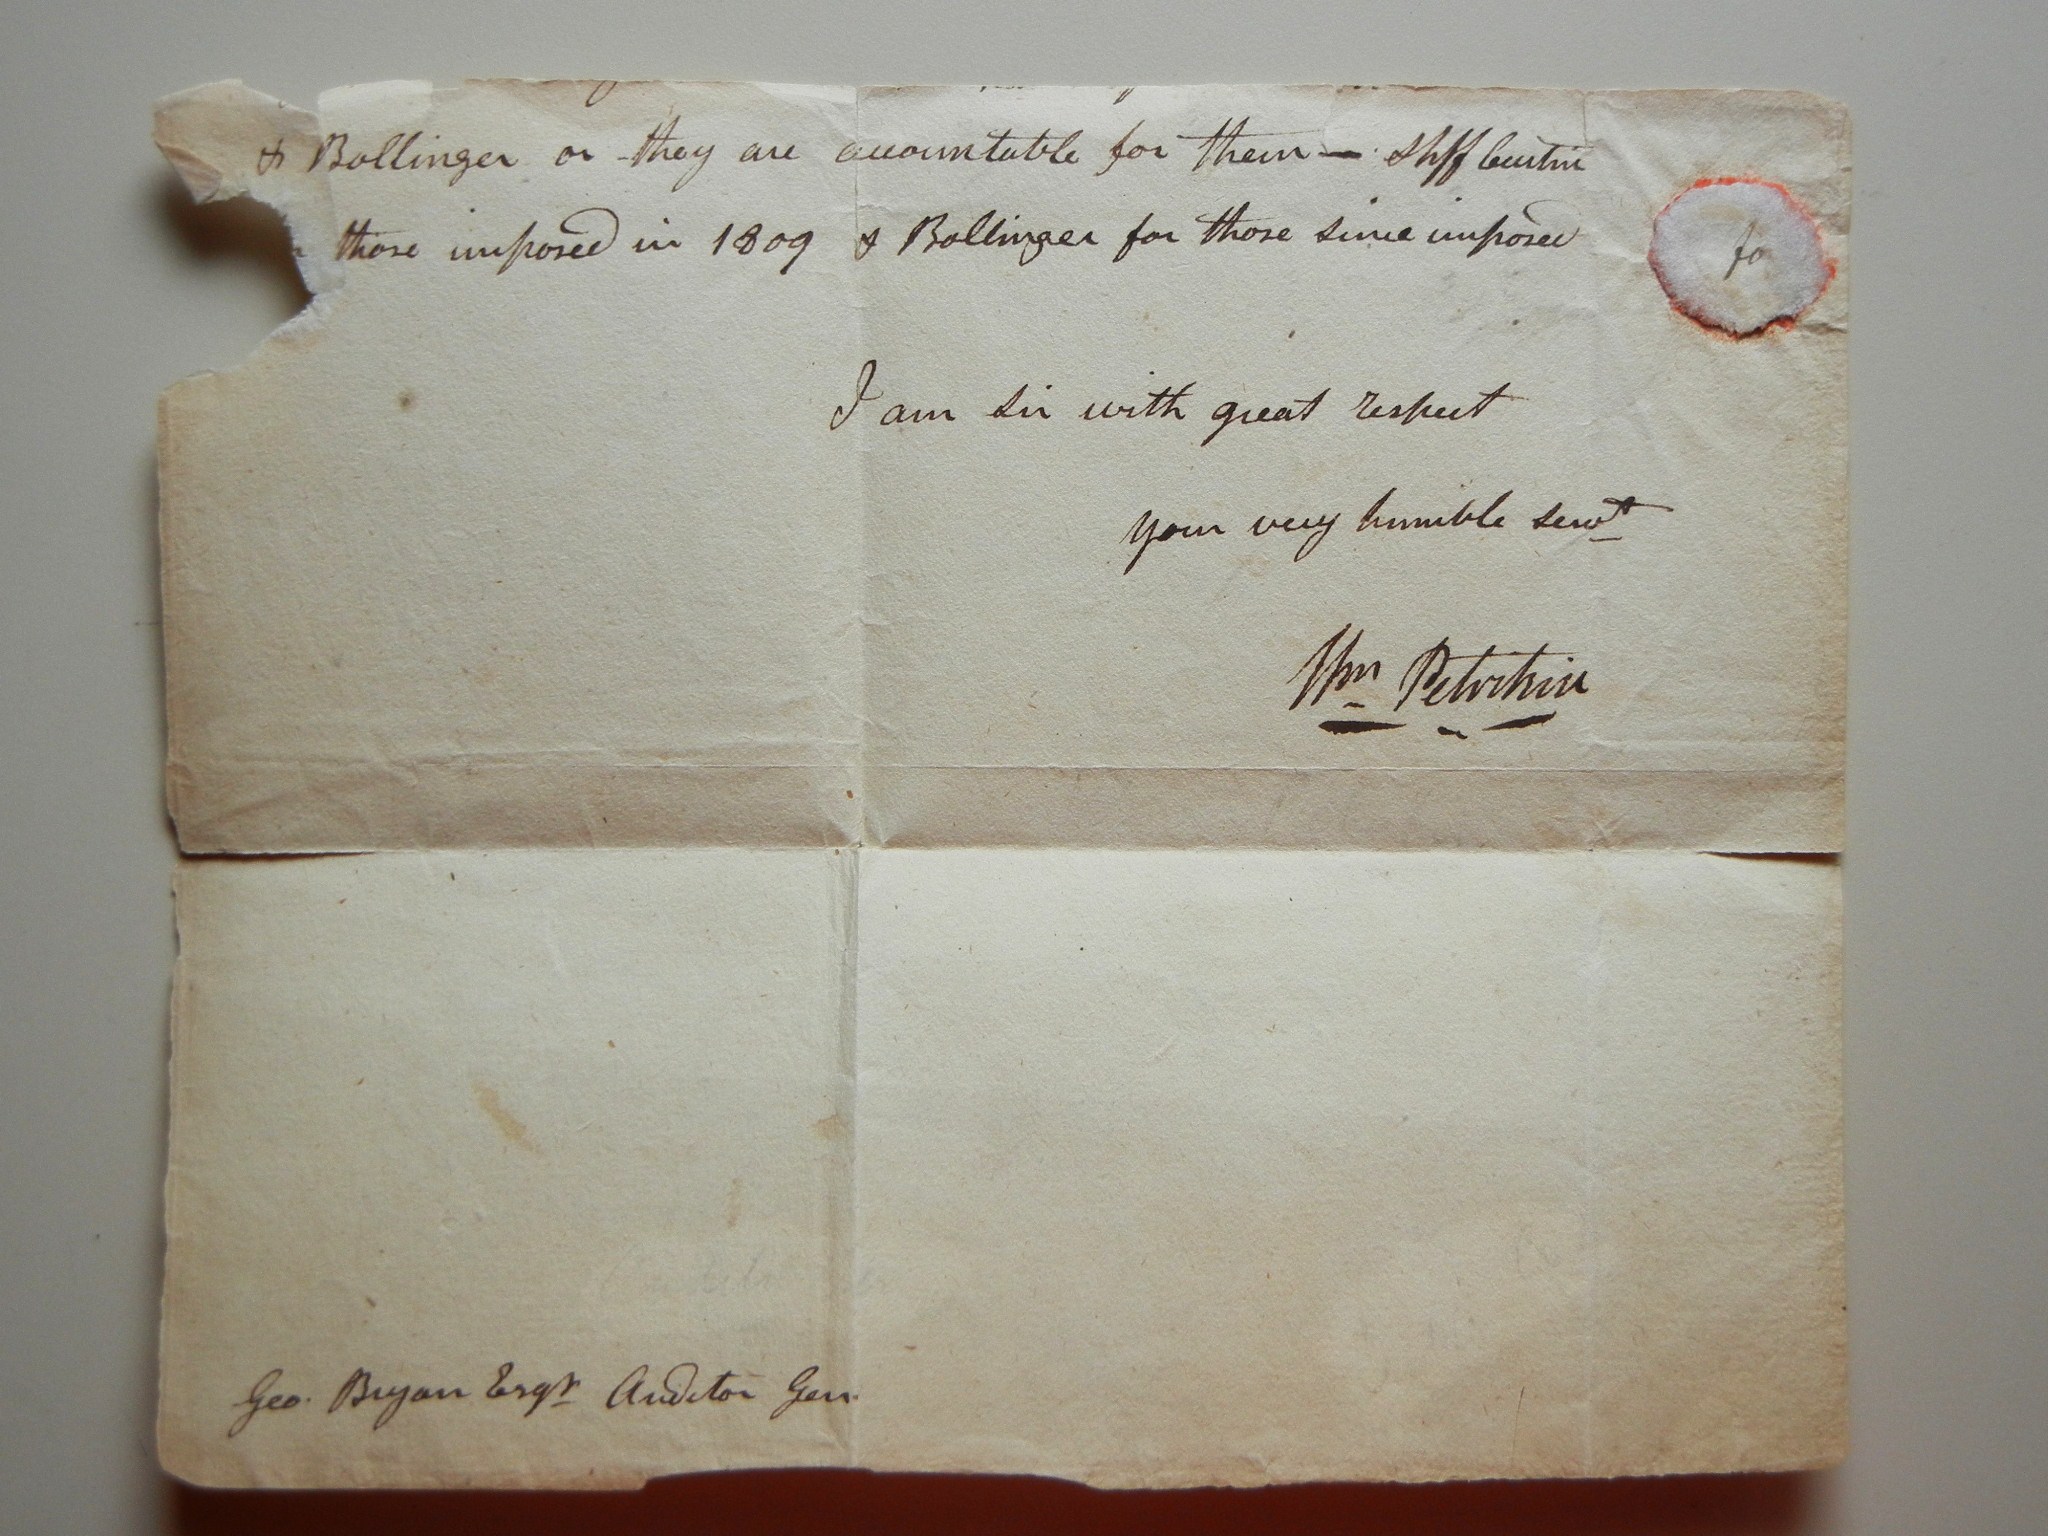 & Bollinger or they are accountable for them — Shff Curtin
fo
those imposed in 1809 & Bollinger for those since imposed
I am sir with great respect
your very humble servt
Wm Petrikin
Geo. Bryan Esqr Auditor Gen.